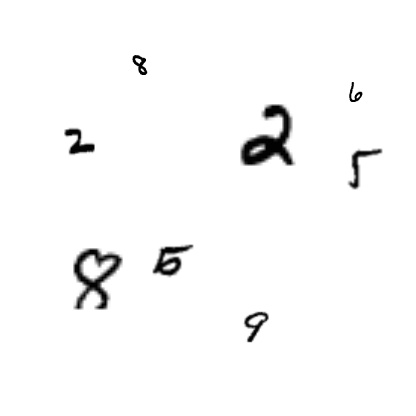 8
6
2
2
5
8
5
9